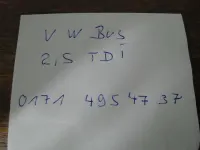 VW Bus
2,5 TDi
0171 495 47 37